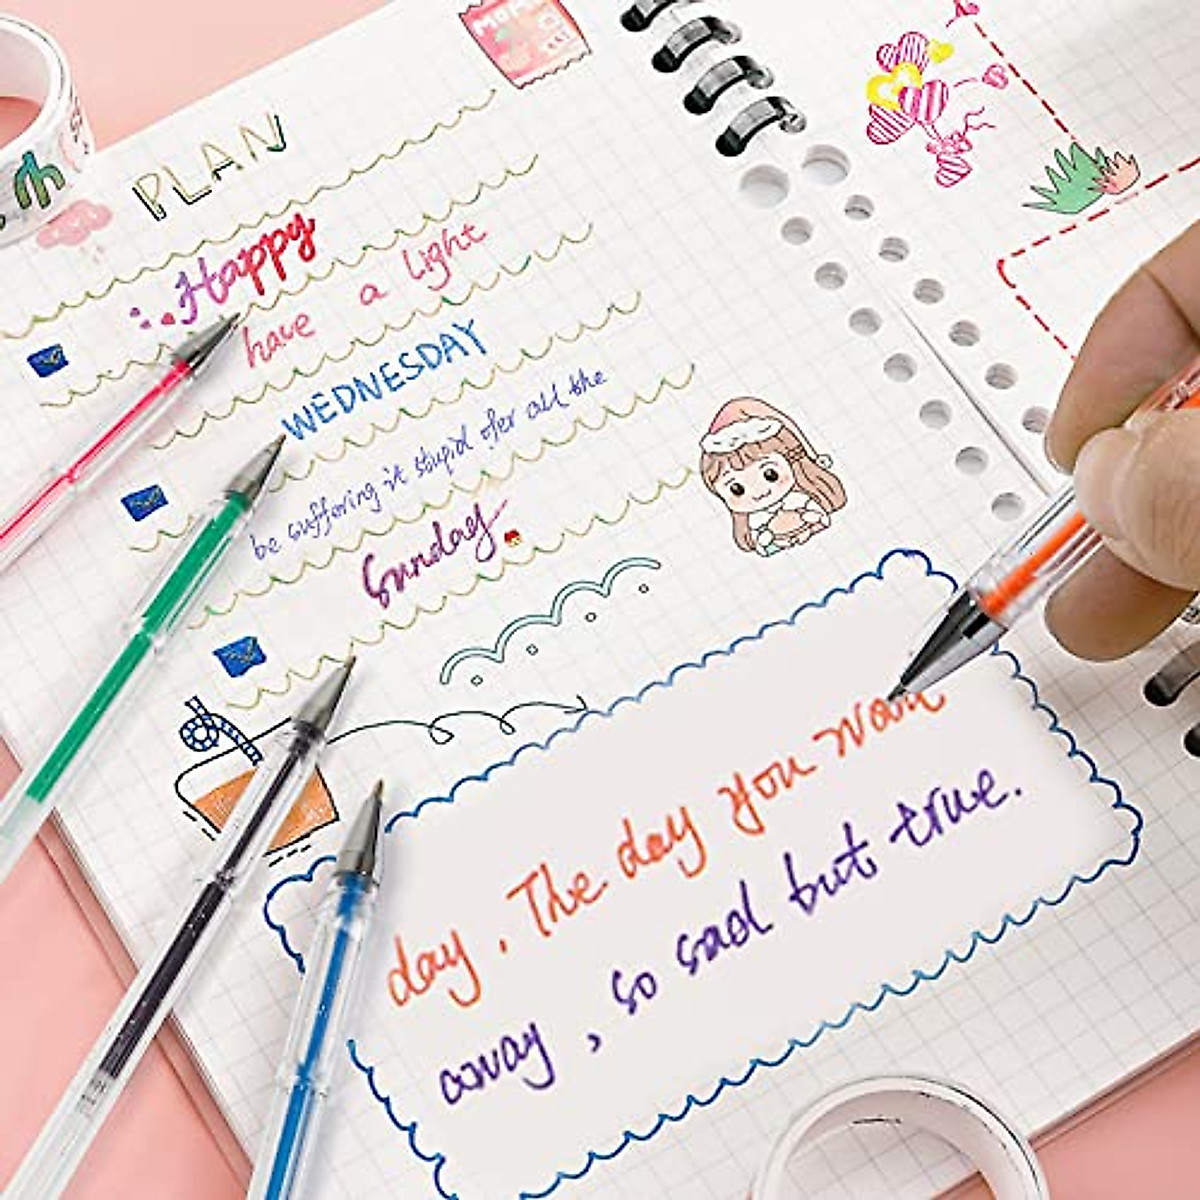 PLAN
Happy
have a light
WEDNESDAY
be suffering it stupid ofer all the
Sunday
day. The day you wan
away, so sad but true.